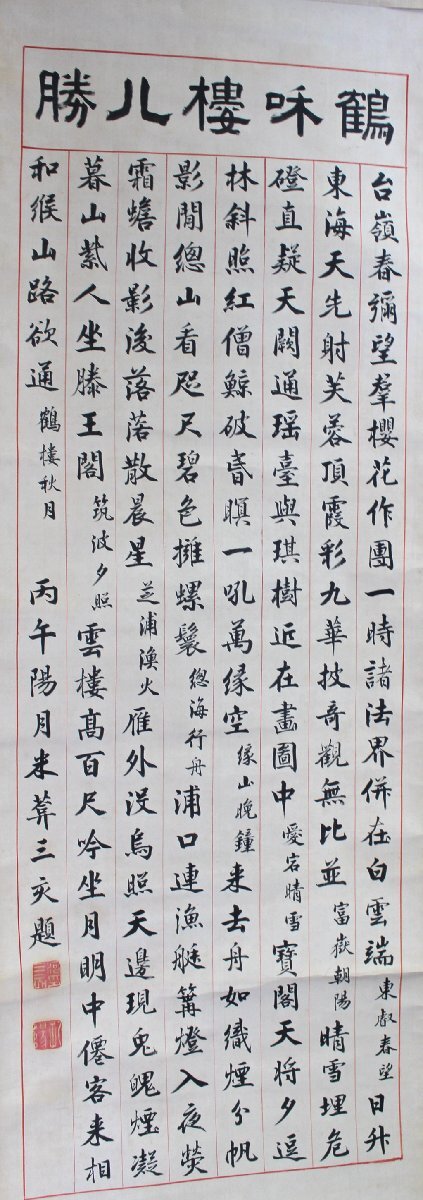 鶴咊樓八勝
台嶺春彌望羣櫻花作團一時諸法界併在白雲端 東叡春望 日升
東海天先射芙蓉頂霞彩九華披奇觀無比並 富嶽朝陽 晴雪埋危
磴直疑天闕通瑶臺與琪樹近在畫圖中 愛宕晴雪 寶閣天將夕逗
林斜照紅僧鯨破昏瞑一吼萬緣空 緣山晚鐘 来去舟如織煙分帆
影閒總山看咫尺碧色擁螺鬟 總海行舟 浦口連漁艇篝燈入夜熒
霜蟾收影後落落散晨星 芝浦漁火 雁外没烏照天邊現兔魄煙凝
暮山紫人坐滕王閣 筑波夕照 雲樓高百尺吟坐月明中僊客来相
和緱山路欲通 鶴樓秋月 丙午陽月米葊三亥題